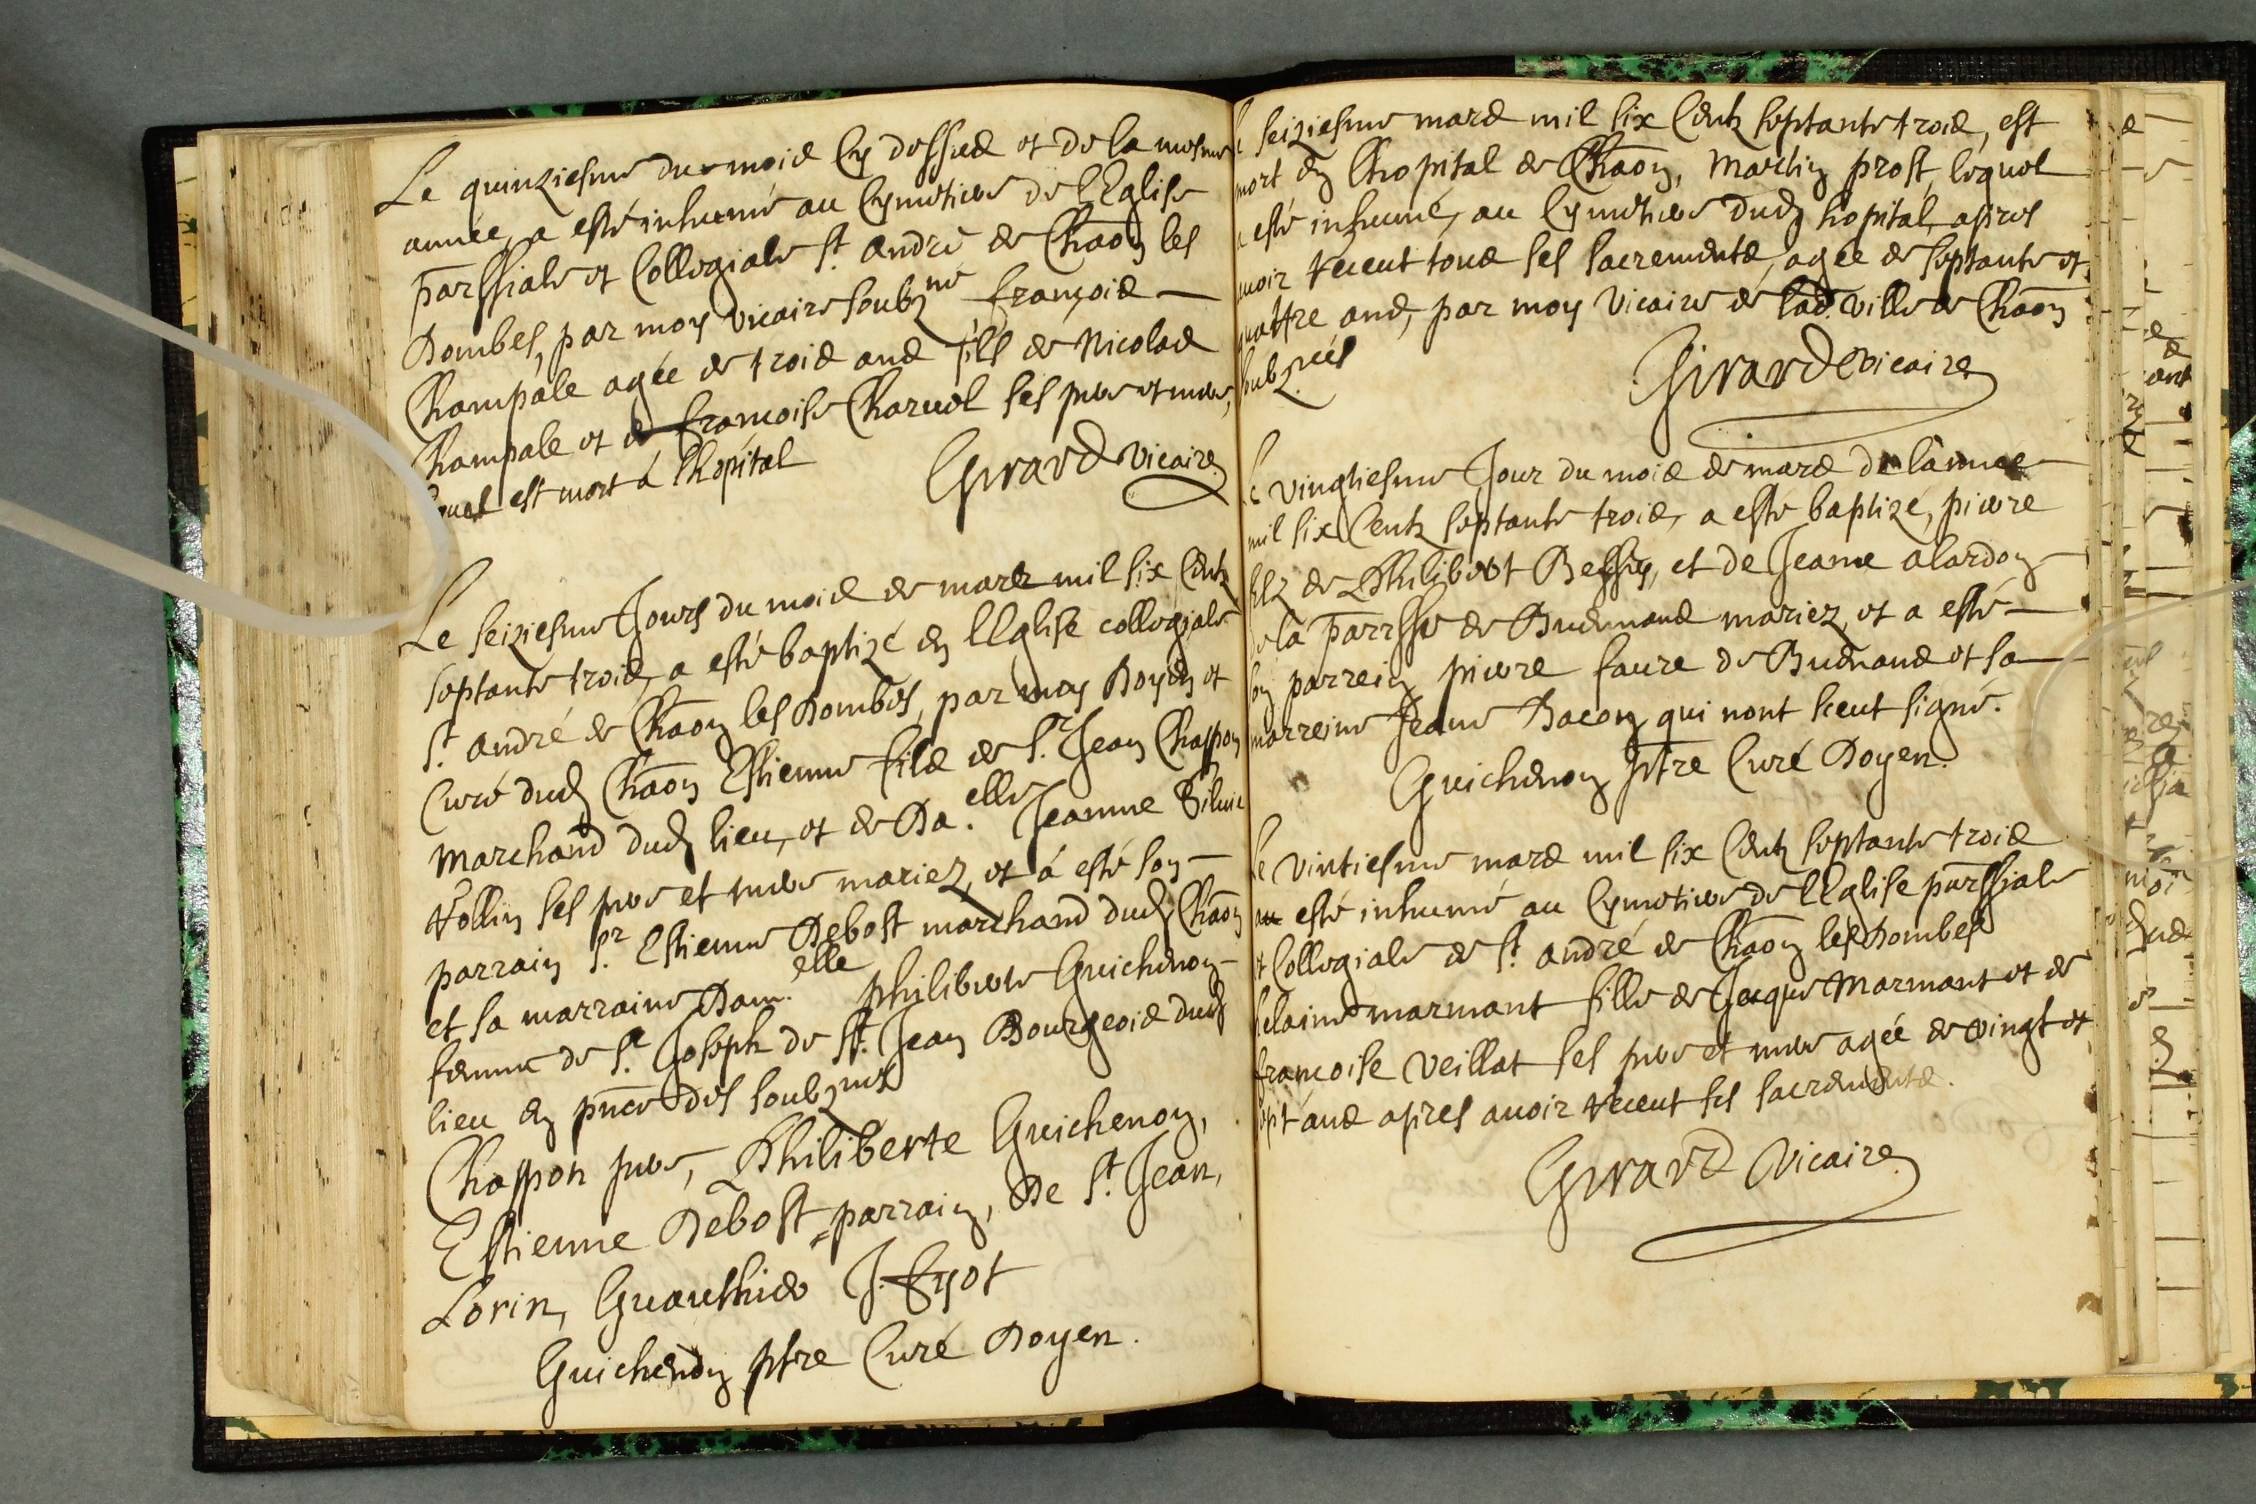 Le quinziesme du mois Cy dessus et de la mesme
année, a esté inhumé au Cymetiere de l'Eglise
parssiale et Collegiale St. André de Chaon les
Dombes, par moy vicaire soubzné françois
Champale agée de trois ans fils de Nicolas
Champale et de françoise Charvel ses pere et mere,
lequel est mort à l'hopital
Girard vicaire
Le seiziesme Jours du mois de mars mil six Centz
septante trois, a esté baptizé en l'Eglise collegiale
St. André de Chaon les Dombes, par moy Doyen et
Curé dud Chaon Estienne fils de Sr. Jean Chappon
Marchand dud lieu, et de Da.elle Jeanne
Vollin ses pere et mere mariez, et à esté son
parrain Sr. Estienne Debost marchand dud Chaon
et sa marraine Dam.elle philiberte Guichenon
femme de Sr. Joseph de St. Jean Bourgeois dud
lieu en pnce des soubznez
Chappon pere, Philiberte Guichenon,
Estienne Debost parrain, De St. Jean,
Lorin, J.
Guichenon ptre Curé Doyen.
Le seiziesme mars mil six Centz septante trois, est
mort en l'hopital de Chaon, Martin prost, lequel
a esté inhumé, au Cymetiere dud hopital, apres
avoir receut tous ses sacrements, agée de septante et
quattre ans, par moy Vicaire de lad. ville de Chaon
subznés
Girard vicaire
Le vingtiesme Jour du mois de mars de lannee
mil six Centz septante trois, a esté baptizé, pierre
filz de Philibert Bessy, et de Jeane alardon
de la parrsse de mariez, et a esté
son parrein pierre faure de et sa
marreine Jeane Dacon qui nont sceut signé.
Guichenon Ptre Curé Doyen.
Le vintiesme mars mil six Centz septante trois
esté inhumé au Cymetiere de l'Eglise parssiale
et Collegiale de St. André de Chaon les Dombes
marmant fille de Jacque Marmant et de
françoise Veillat ses pere et mere agée de vingt et
sept ans apres avoir receut ses sacrements.
Girard Vicaire